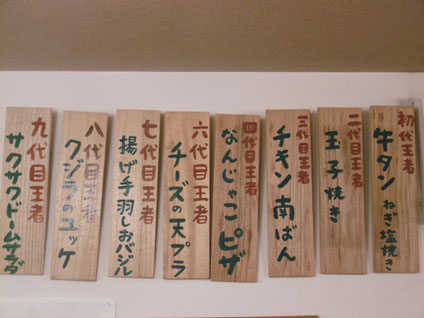 初代王者
牛タンねぎ塩焼き
二代目王者
玉子焼き
三代目王者
チキン南ばん
四代目王者
なんじゃこピザ
六代目王者
チーズの天プラ
七代目王者
揚げ手羽しおバジル
八代目王者
クジラのユッケ
九代目王者
サクサワドームサラダ